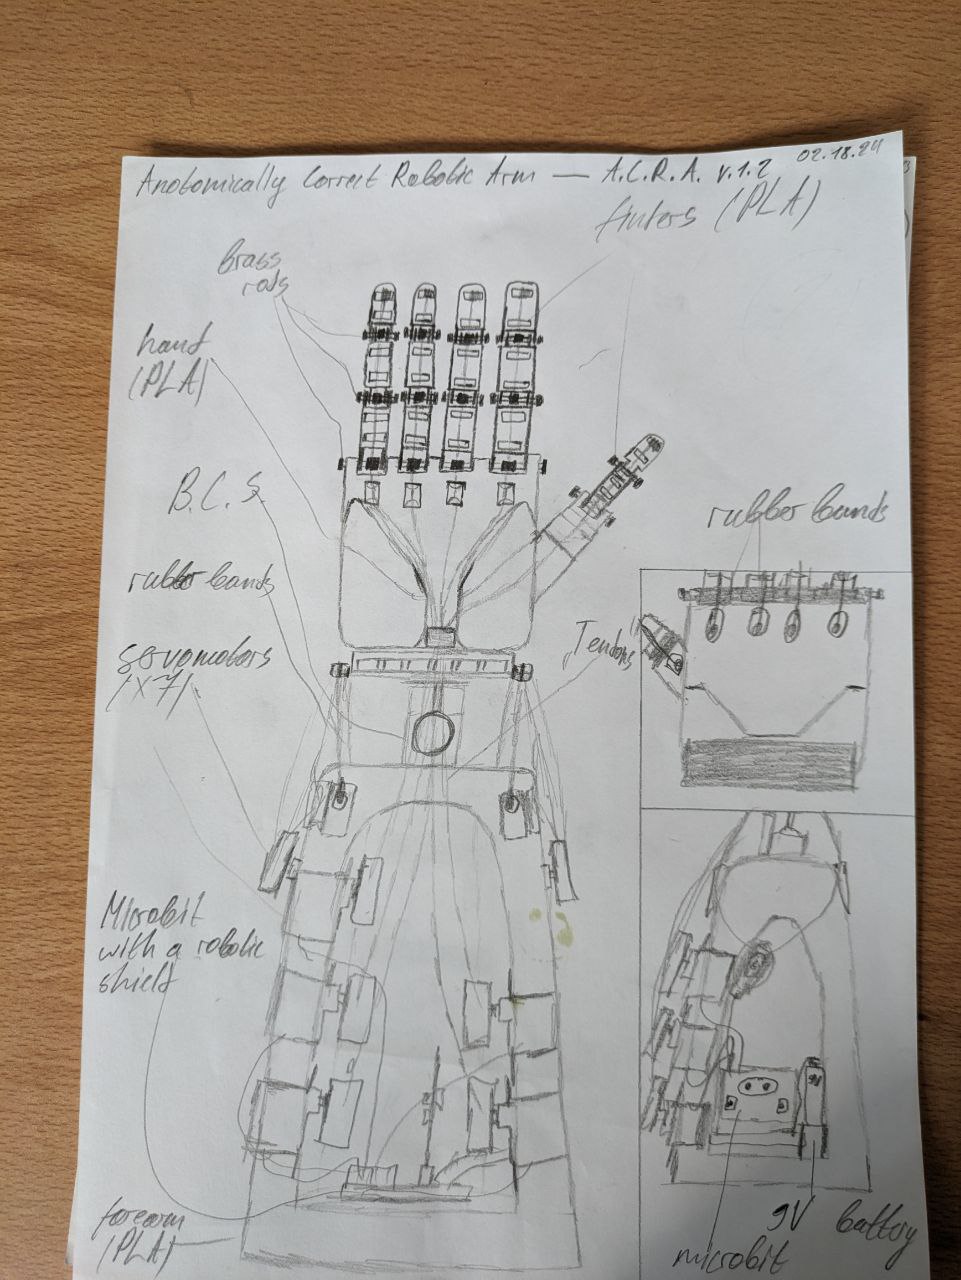 Anotomically Correct Robotic Arm — A.C.R.A. v.1.2
02.18.24
finters (PLA)
Brass
rods
hand
(PLA)
B.C.S.
rubber bands
rubber bands
servomotors
(x7)
Tendons
Microbit
with a robotic
shield
9V
forearm
(PLA)
9V battery
microbit